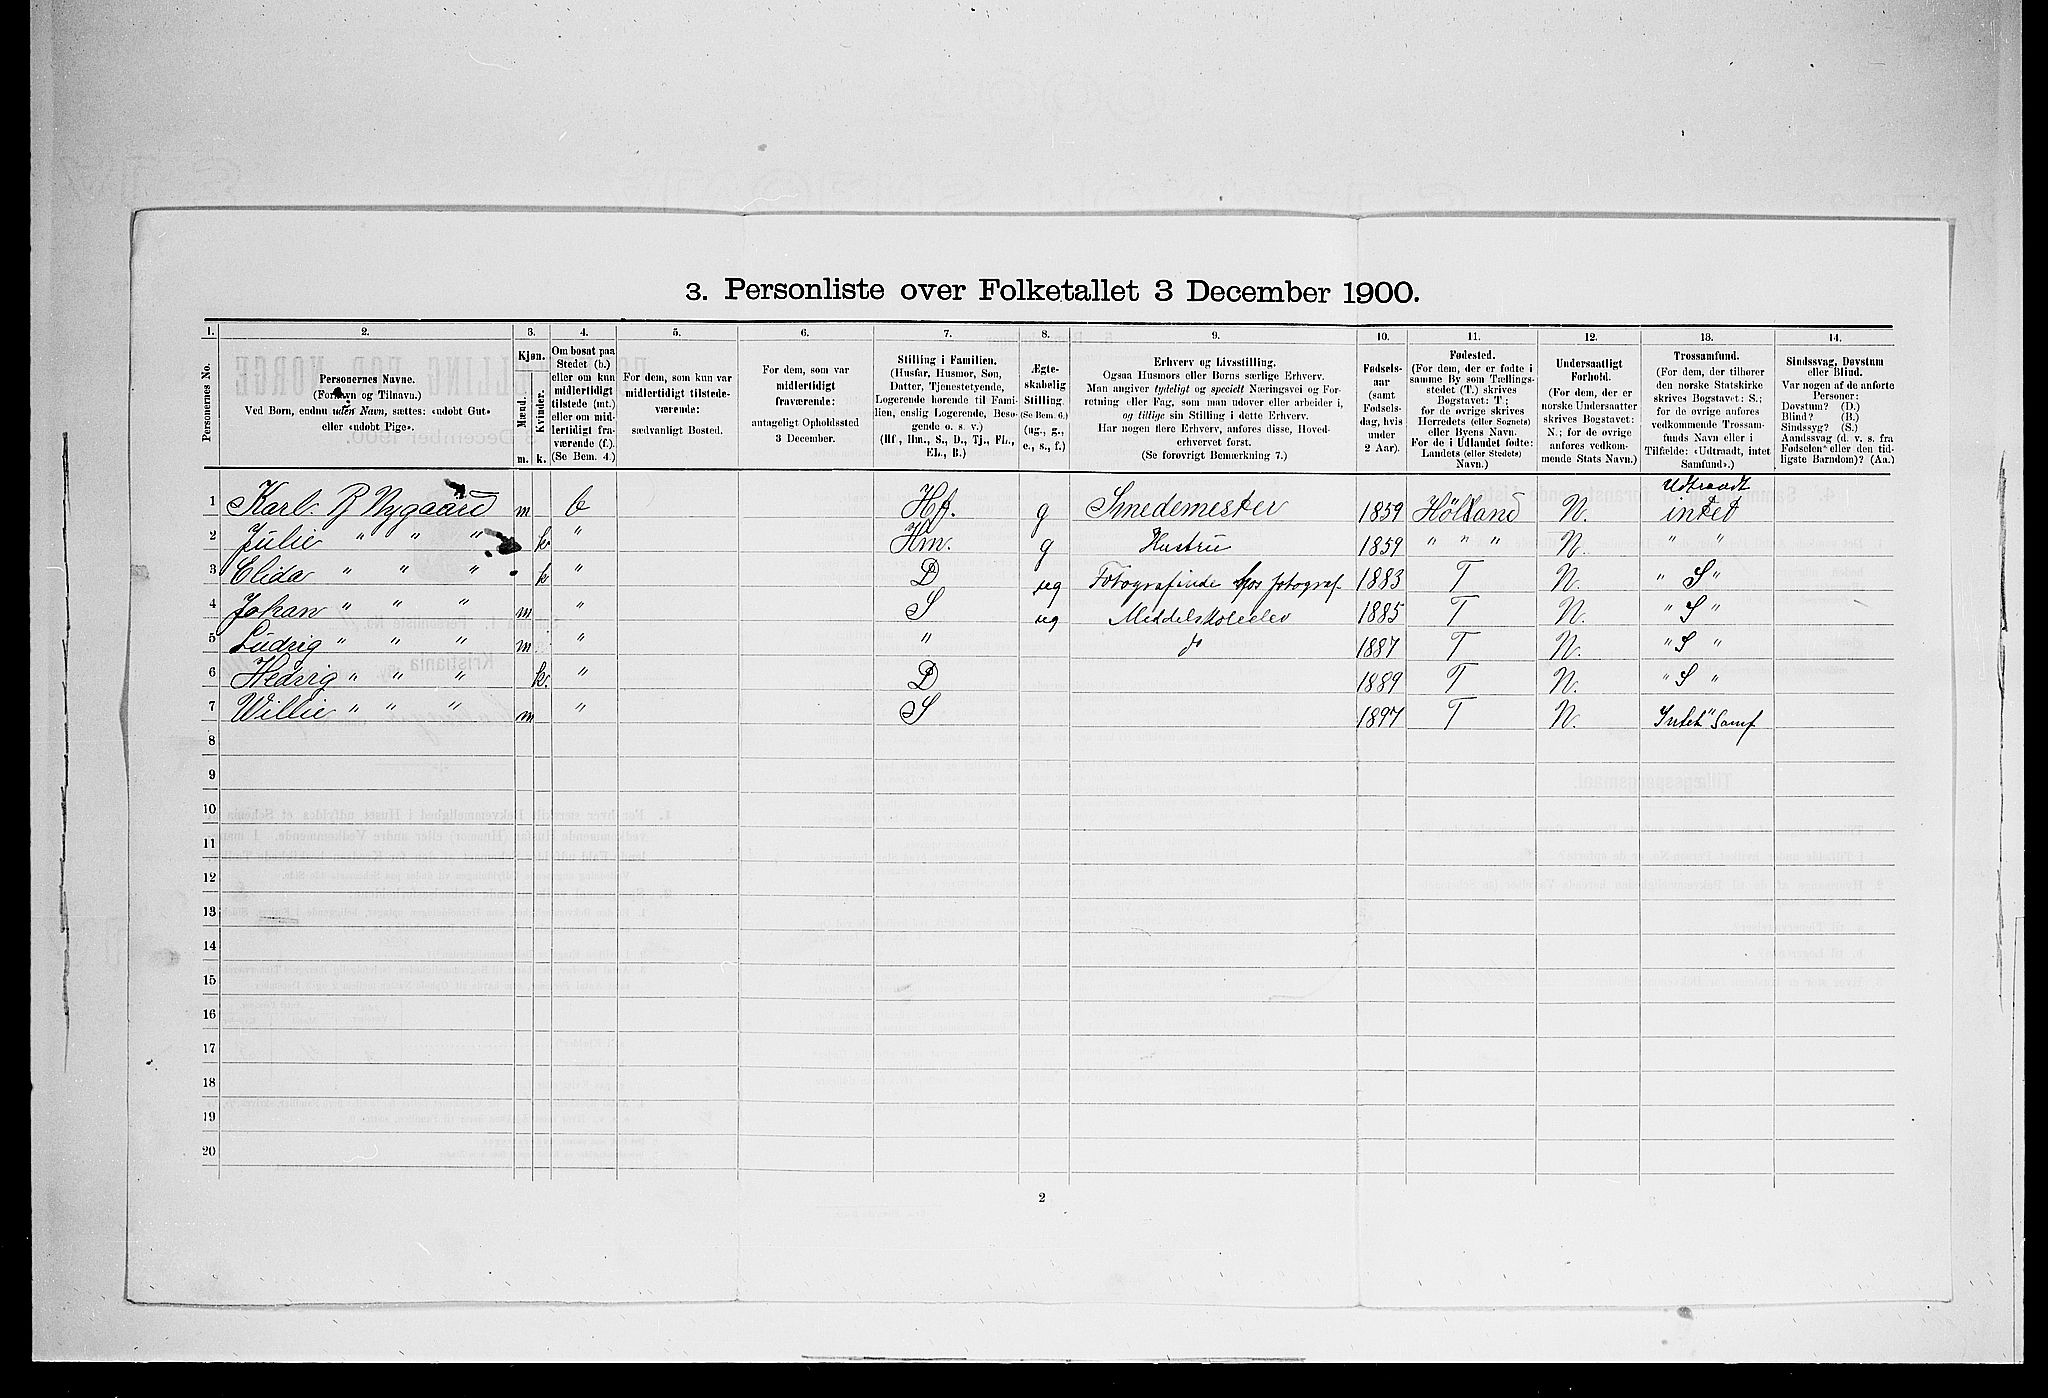 3. Personliste over Folketallet 3 December 1900.
1. 2. 3. 4. 5. 6. 7. 8. 9. 10. 11. 12. 13. 14.
Personernes No.
Personernes Navne.
(Fornavn og Tilnavn.)
Ved Børn, endnu uden Navn, sættes: «udøbt Gut»
eller «udøbt Pige».
Kjøn.
Mænd.
Kvinder.
m. k.
Om bosat paa
Stedet (b.)
eller om kun
midlertidigt
tilstede (mt.)
eller om mid-
lertidigt fra-
værende (f.).
(Se Bem. 4.)
For dem, som kun var
midlertidigt tilstede-
værende:
sædvanligt Bosted.
For dem, som var
midlertidigt
fraværende:
antageligt Opholdssted
3 December.
Stilling i Familien.
(Husfar, Husmor, Søn,
Datter, Tjenestetyende,
Logerende hørende til Fami-
lien, enslig Logerende, Besø-
gende o. s. v.)
(Hf., Hm., S., D., Tj., FL.,
EL., B.)
Ægte-
skabelig
Stilling.
(Se Bem. 6.)
(ug., g.,
e., s., f.)
Erhverv og Livsstilling.
Ogsaa Husmors eller Børns særlige Erhverv.
Man angiver tydeligt og specielt Næringsvei og For-
retning eller Fag, som man udøver eller arbeider i,
og tillige sin Stilling i dette Erhverv.
Har nogen flere Erhverv, anføres disse, Hoved-
erhvervet først.
(Se forøvrigt Bemærkning 7.)
Fødsels-
aar
(samt
Fødsels-
dag, hvis
under
2 Aar).
Fødested.
(For dem, der er fødte i
samme By som Tællings-
stedet (T.) skrives
Bogstavet: T;
for de øvrige skrives
Herredets (eller Sognets)
eller Byens Navn.
For de i Udlandet fødte:
Landets (eller Stedets)
Navn.)
Undersaatligt
Forhold.
(For dem, der er
norske Undersaatter
skrives Bogstavet:
N.; for de øvrige
anføres vedkom-
mende Stats Navn.)
Trossamfund.
(For dem, der tilhører
den norske Statskirke
skrives Bogstavet: S.;
for de øvrige anføres
vedkommende Trossam-
funds Navn eller i
Tilfælde: «Udtraadt, intet
Samfund».)
Sindssvag, Døvstum
eller Blind.
Var nogen af de anførte
Personer:
Døvstum? (D.)
Blind? (B.)
Sindssyg? (S.)
Aandssvag (d. v. s. fra
Fødselen eller den tid-
ligste Barndom)? (Aa.)
1 Karl. R Nygaard m b Hf. g Smedemester 1859 Hölland N. Udtraadt intet
2 Julie " " " k " Hm. g Hustru 1859 " " " N. " "
3 Elida " " " k " D ug Fotografinde hos fotograf 1883 T N. " S "
4 Johan " " " m " S ug Middelskoleelev 1885 T N. " S "
5 Ludvig " " " m " " do 1887 T N. " S "
6 Hedvig " " " k. " D 1889 T N. " S "
7 Willie " " " m " S 1897 T N. Intet " Samf
8
9
10
11
12
13
14
15
16
17
18
19
20
2